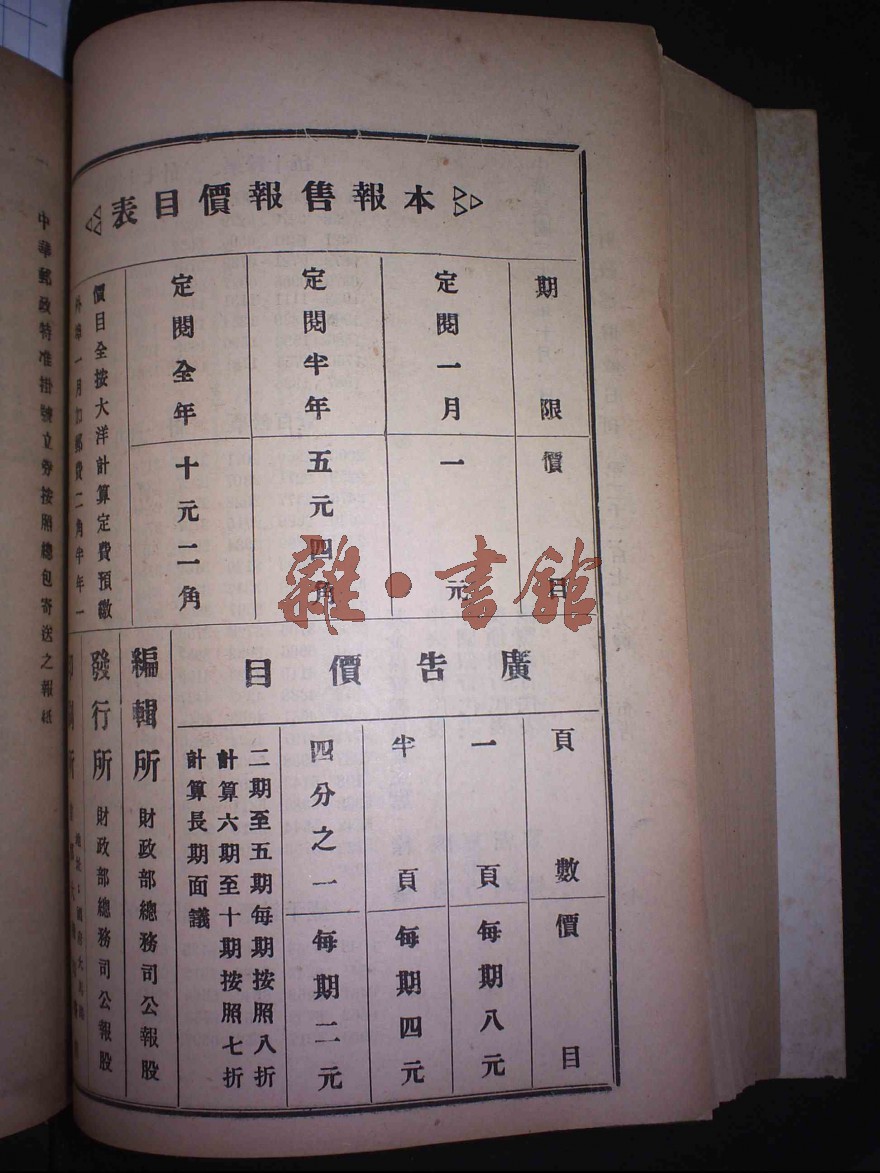 本報售報價目表
期限
價目
定閱一月
一元
定閱半年
五元四角
定閱全年
十元二角
價目全按大洋計算定費預繳
外埠一月加郵費二角半年一
廣告價目
頁數
價目
一頁
每期八元
半頁
每期四元
四分之一
每期二元
二期至五期每期按照八折
計算六期至十期按照七折
計算長期面議
編輯所 財政部總務司公報股
發行所 財政部總務司公報股
中華郵政特准掛號立券按照總包寄送之報紙
雜·書館